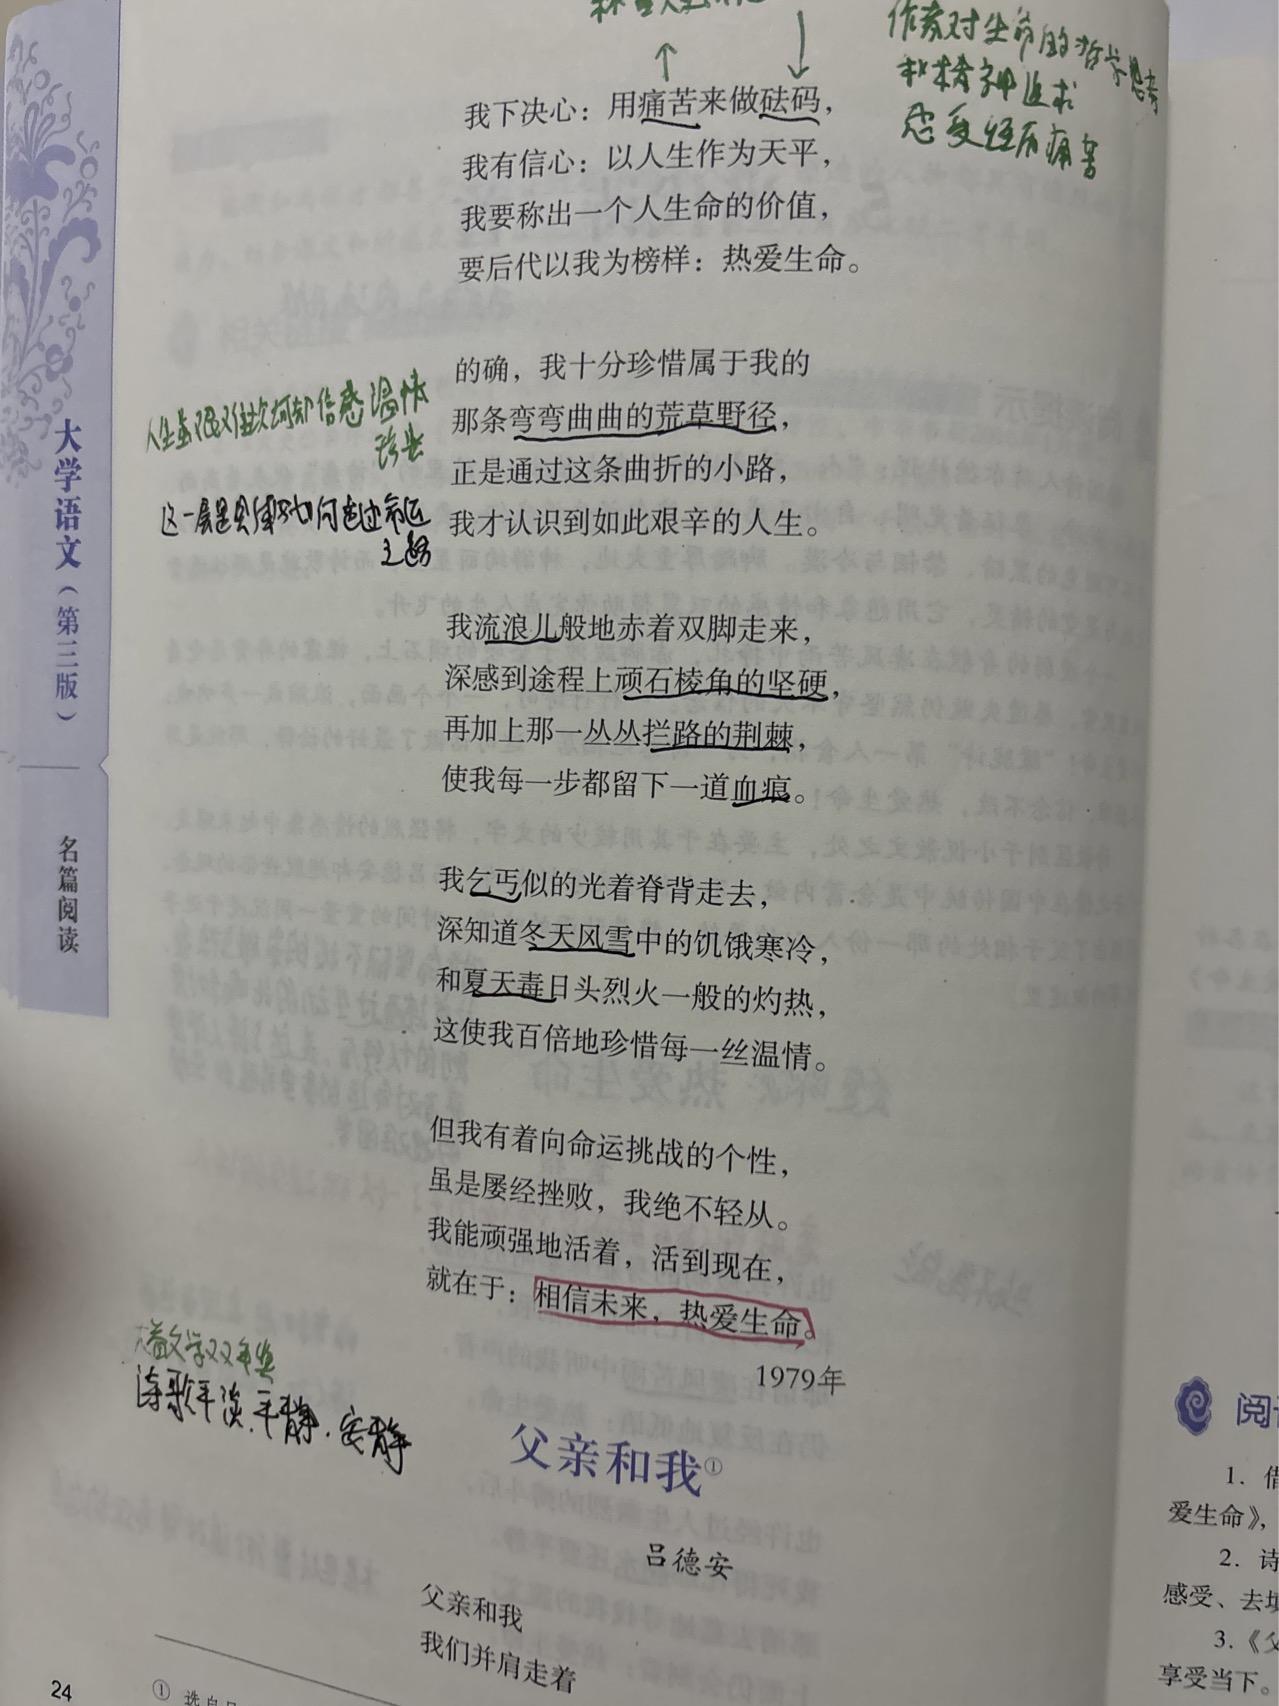 作者对生命的哲学思考
和精神追求
感受经历痛苦
我下决心：用痛苦来做砝码，
我有信心：以人生作为天平，
我要称出一个人生命的价值，
要后代以我为榜样：热爱生命。
的确，我十分珍惜属于我的
那条弯弯曲曲的荒草野径，
正是通过这条曲折的小路，
我才认识到如此艰辛的人生。
温情
珍贵
我流浪儿般地赤着双脚走来，
深感到途程上顽石棱角的坚硬，
再加上那一丛丛拦路的荆棘，
使我每一步都留下一道血痕。
我乞丐似的光着脊背走去，
深知道冬天风雪中的饥饿寒冷，
和夏天毒日头烈火一般的灼热，
这使我百倍地珍惜每一丝温情。
但我有着向命运挑战的个性，
虽是屡经挫败，我绝不轻从。
我能顽强地活着，活到现在，
就在于：相信未来，热爱生命。
1979年
文学双年奖
诗歌平淡、平静、安静
父亲和我①
吕德安
父亲和我
我们并肩走着
大学语文（第三版）
名篇阅读
24
①
1.
爱生命》，
2. 诗
感受、去
3.《父
享受当下。